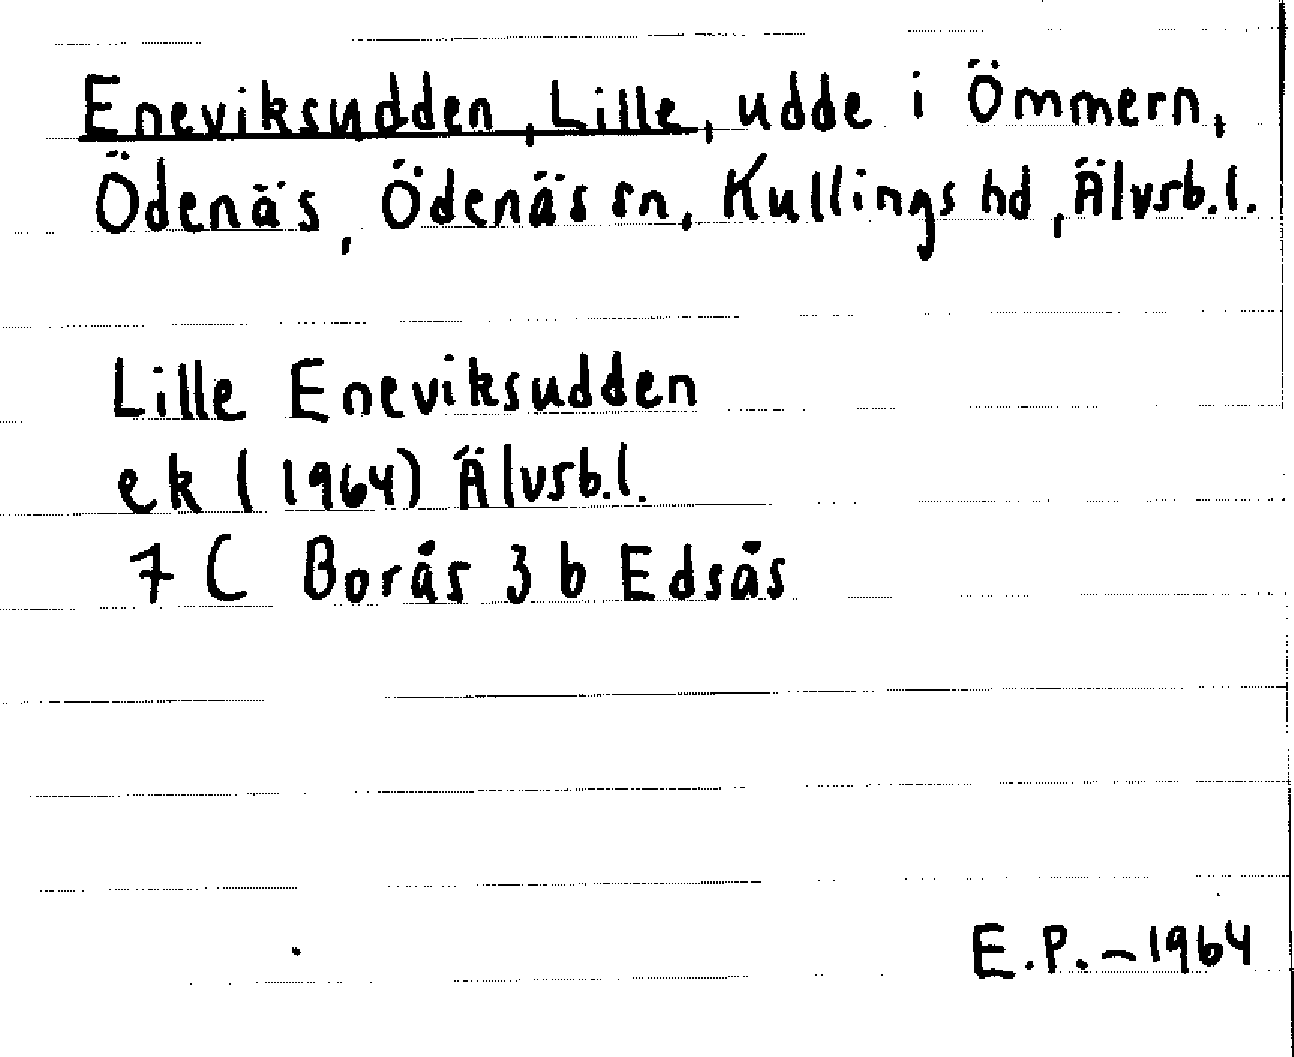 Eneviksudden, Lille, udde i Ömmern,
Ödenäs, Ödenäs sn, Kullings hd, Älvsb.l.
Lille Eneviksudden
ek (1964) Älvsb.l.
7 C Borås 3 b Edsås
E.P. - 1964